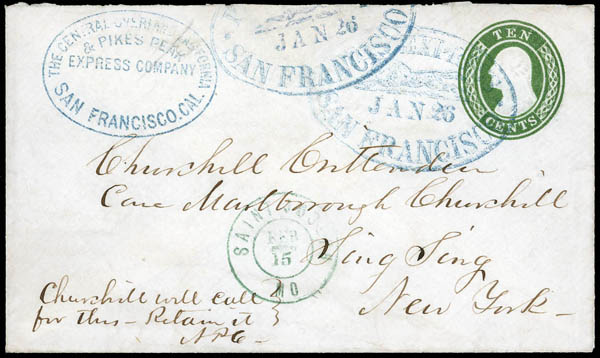 THE CENTRAL OVERLAND CALIFORNIA
& PIKES PEAK
EXPRESS COMPANY
SAN FRANCISCO.CAL.
JAN 26
SAN FRANCISCO
JAN 26
SAN FRANCISCO
TEN
CENTS
Churchill Crittenden
Care Marlborough Churchill
Sing Sing
New York
SAINT
FEB
15
MO
Churchill will call
for this - Retain it
APC